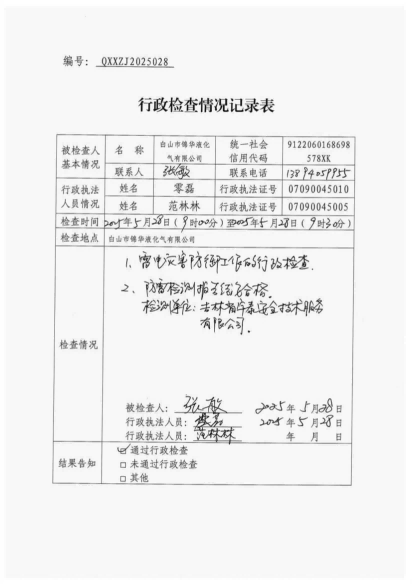 编号：QXXZJ2025028
行政检查情况记录表
被检查人基本情况 名称 白山市锦华液化气有限公司 统一社会信用代码 9122060168698578XK
联系人 张敏 联系电话 13894059955
行政执法人员情况 姓名 零磊 行政执法证号 07090045010
姓名 范林林 行政执法证号 07090045005
检查时间 2025年5月28日（9时00分）至2025年5月28日（9时30分）
检查地点 白山市锦华液化气有限公司
检查情况
1、雷电灾害防御工作的行政检查.
2、防雷检测报告结论合格.
检测单位：吉林省 安全技术服务
有限公司.
被检查人：张敏 2025年5月28日
行政执法人员： 2025年5月28日
行政执法人员：范林林 年 月 日
结果告知
☑通过行政检查
□未通过行政检查
□其他